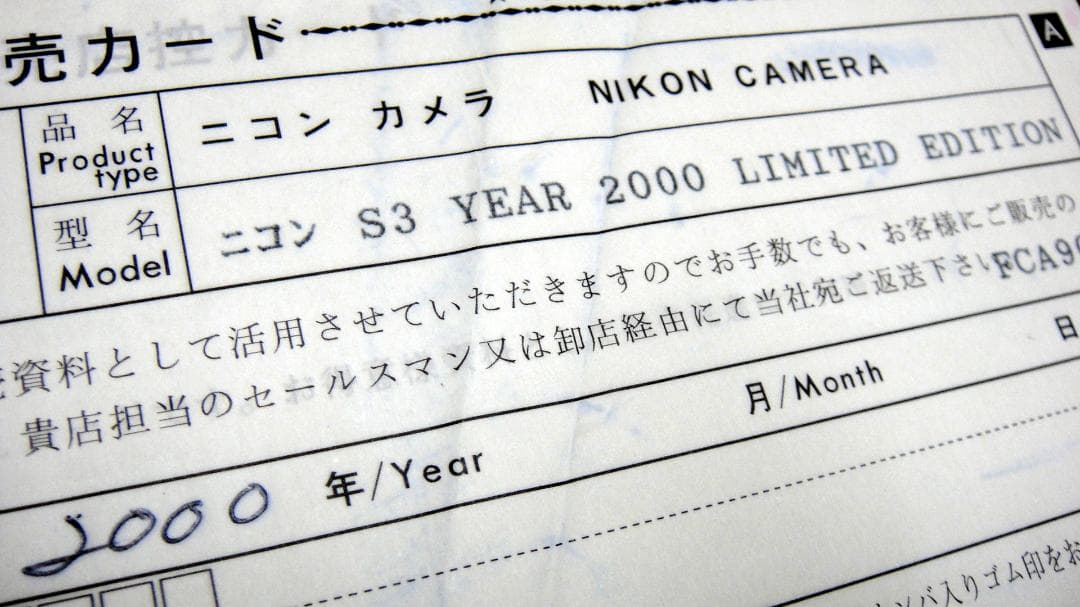 売カード
A
品名 ニコン カメラ NIKON CAMERA
Product type
型名 ニコン S3 YEAR 2000 LIMITED EDITION
Model
資料として活用させていただきますのでお手数でも、お客様にご販売の
貴店担当のセールスマン又は卸店経由にて当社宛ご返送下さい FCA90
2000 年/Year 月/Month 日
入りゴム印をお